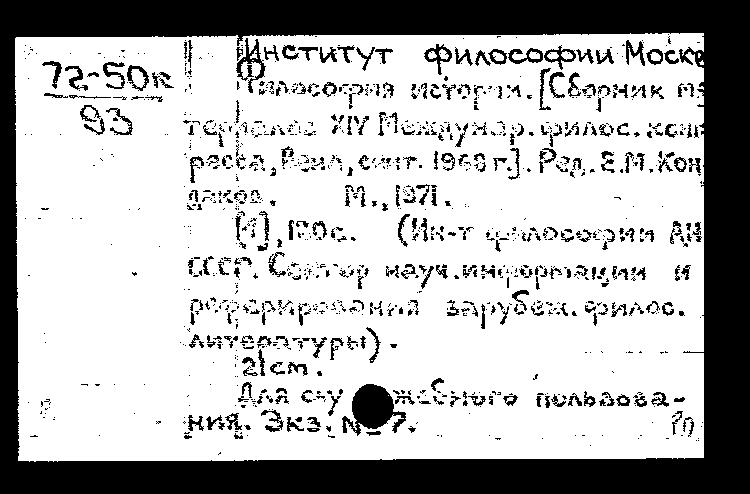 72-50к
93
Институт философии Москв
Философия истории. [Сборник ма
териалов XIV Междунар. филос. конг
ресса, Вена, сент. 1968 г.]. Ред. Е.М. Кон-
даков. М., 1971.
[1], 180с. (Ин-т философии АН
СССР. Сектор науч. информации и
реферирования зарубеж. филос.
литературы).
21 cm.
Для служебного пользова-
ния. Экз. № 7.